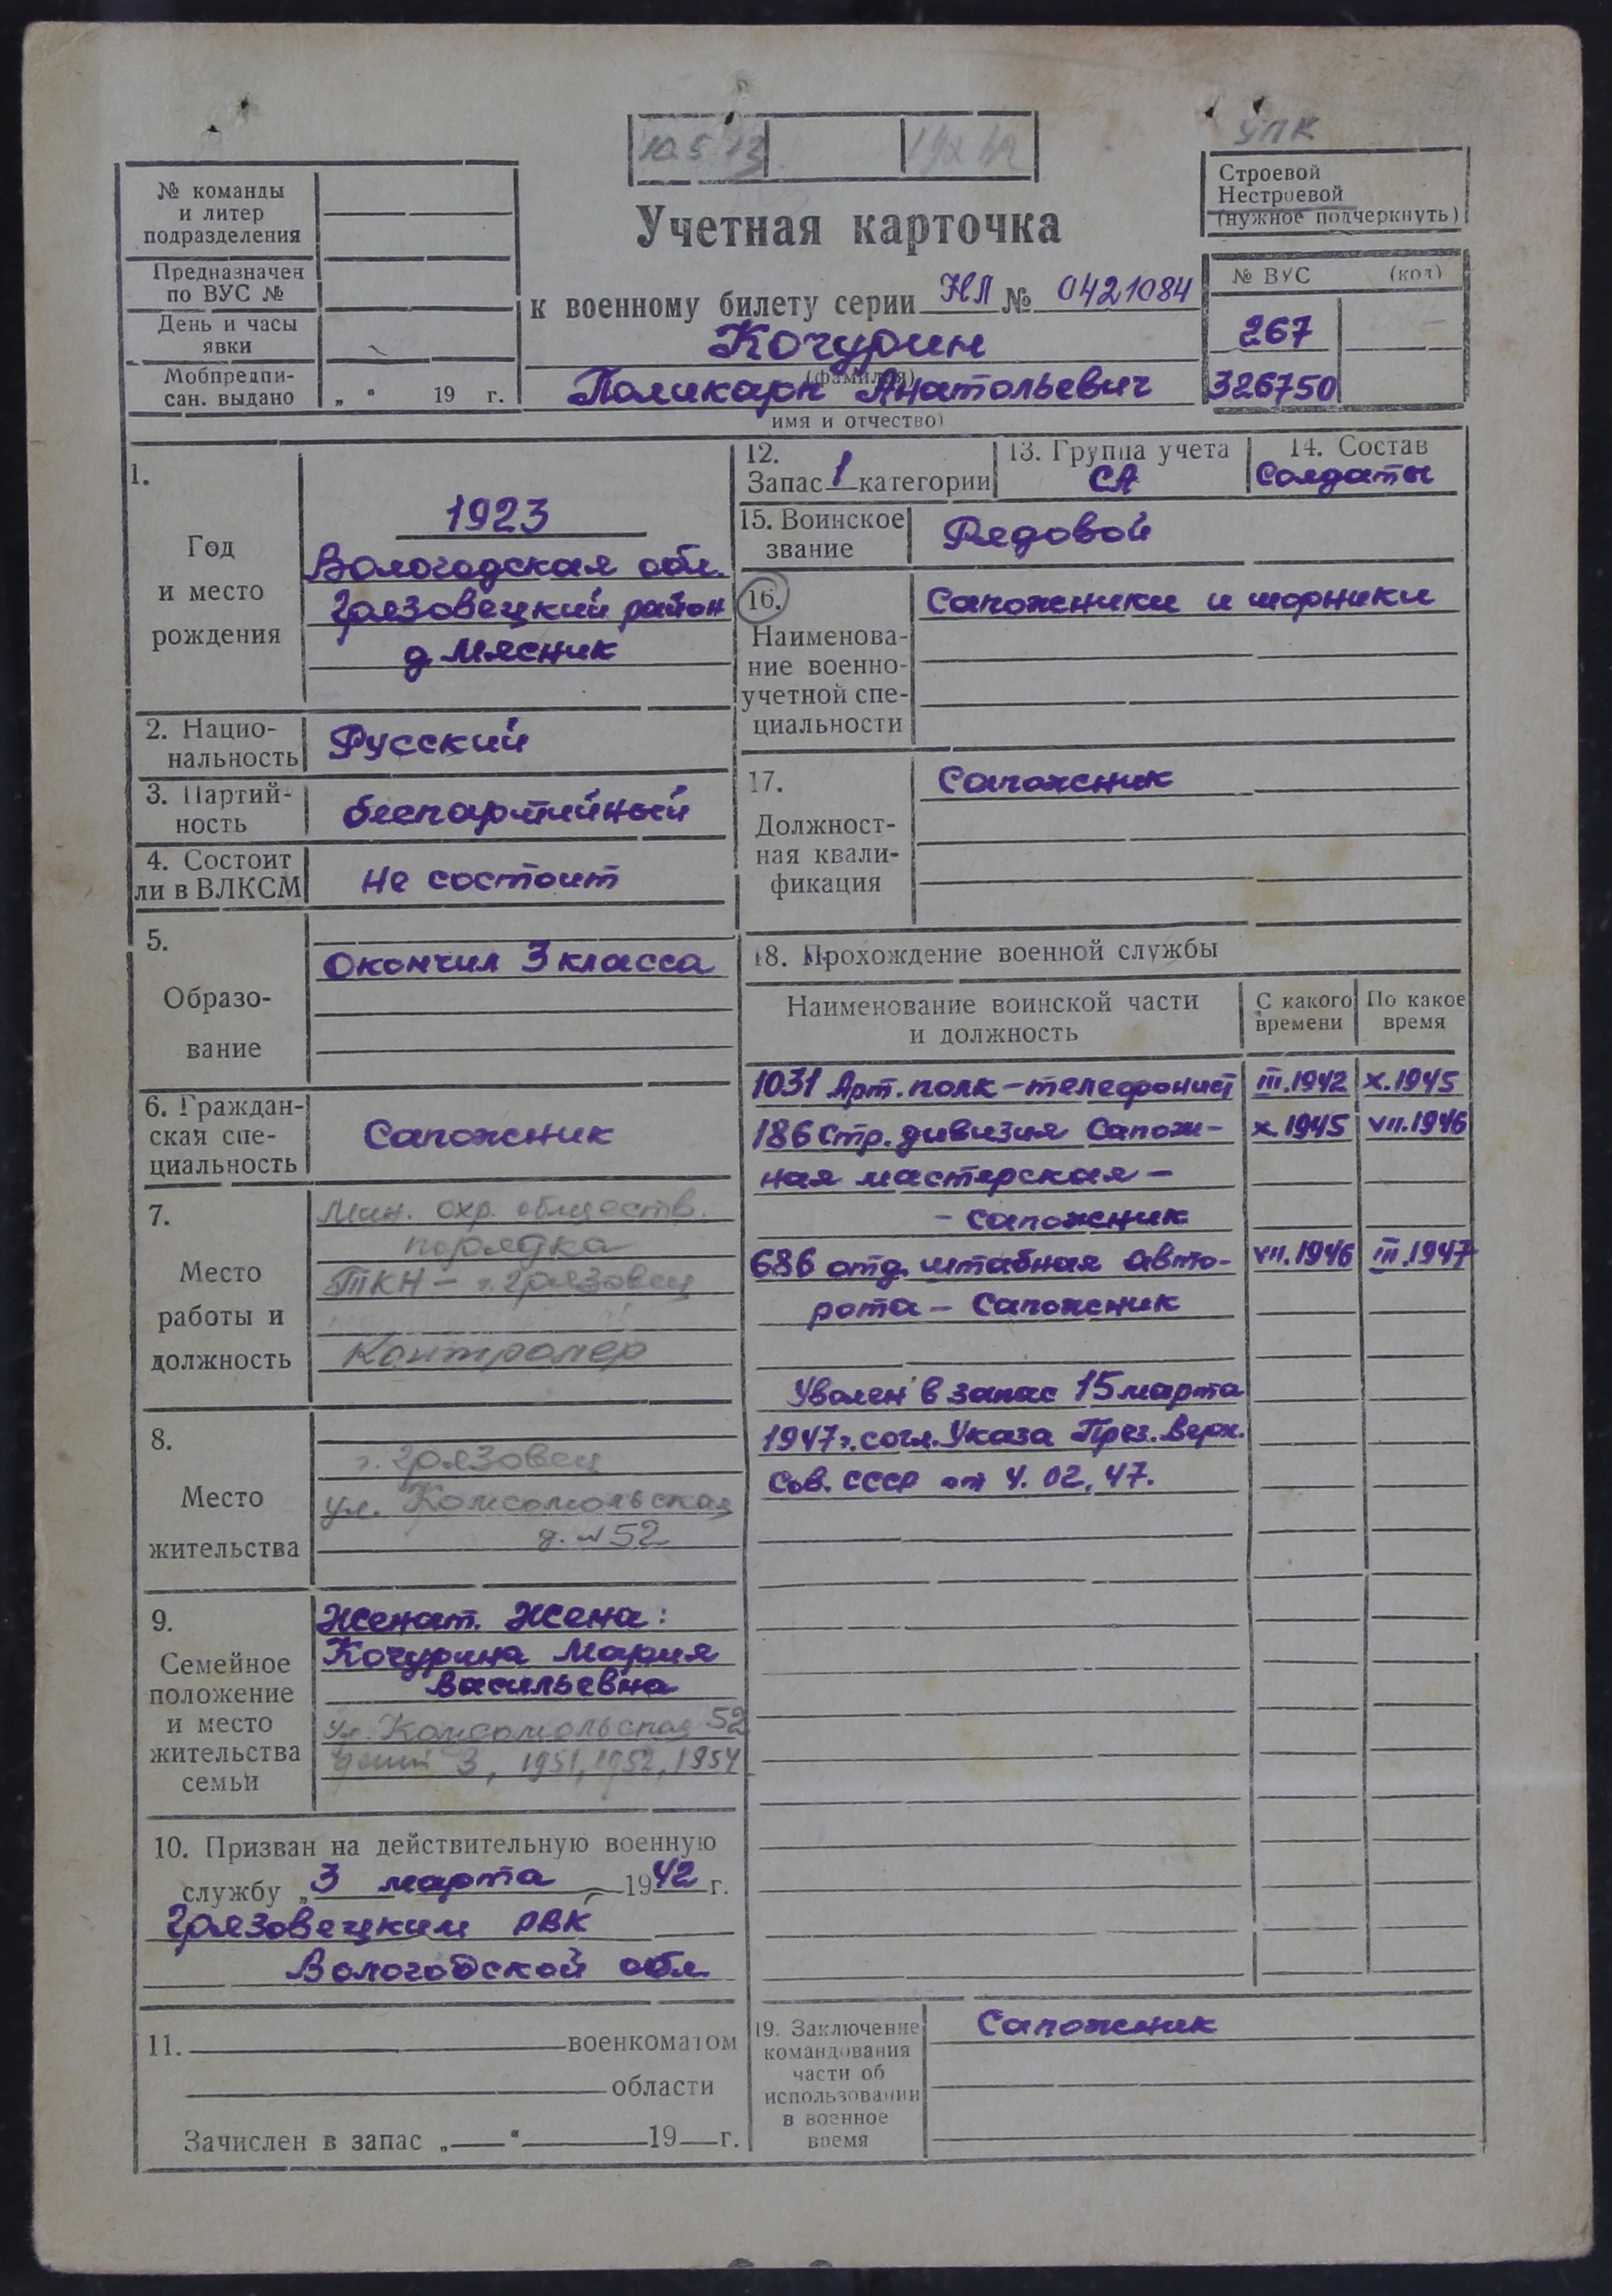 УПК
10 5 13
№ команды
и литер
подразделения
Предназначен
по ВУС №
День и часы
явки
Мобпредпи-
сан. выдано „ “ 19 г.
Учетная карточка
к военному билету серии НЛ № 0421084
Кочурин
(фамилия)
Поликарп Анатольевич
имя и отчество)
Строевой
Нестроевой
(нужное подчеркнуть)
№ ВУС (код)
267
326750
1.
Год
и место
рождения
1923
Вологодская обл.
Грязовецкий район
д Мясник
2. Нацио-
нальность
Русский
3. Партий-
ность
беспартийный
4. Состоит
ли в ВЛКСМ
не состоит
5.
Образо-
вание
Окончил 3 класса
6. Граждан-
ская спе-
циальность
Сапожник
7.
Место
работы и
должность
Мин. охр. обществ.
порядка
ТКН – г. Грязовец
Контролер
8.
Место
жительства
г. Грязовец
ул. Комсомольская
д. № 52
9.
Семейное
положение
и место
жительства
семьи
Женат. Жена:
Кочурина Мария
Васильевна
ул. Комсомольская 52
дети 3, 1951, 1952, 1954
10. Призван на действительную военную
службу „ 3 марта 1942 г.
Грязовецким РВК
Вологодской обл
11. военкоматом
области
Зачислен в запас „ “ 19 г.
12.
Запас 1 категории
13. Группа учета
СА
14. Состав
Солдаты
15. Воинское
звание
Рядовой
16.
Наименова-
ние военно-
учетной спе-
циальности
Сапожники и шорники
17.
Должност-
ная квали-
фикация
Сапожник
18. Прохождение военной службы
Наименование воинской части
и должность
С какого
времени
По какое
время
1031 Арт. полк – телефонист III.1942 X.1945
186 Стр. дивизия Сапож- X.1945 VII.1946
ная мастерская –
– сапожник
686 отд. штабная авто- VII.1946 III.1947
рота – Сапожник
Уволен в запас 15 марта
1947 г. согл. Указа През. Верх.
Сов. СССР от 4. 02. 47.
19. Заключение
командования
части об
использовании
в военное
время
Сапожник